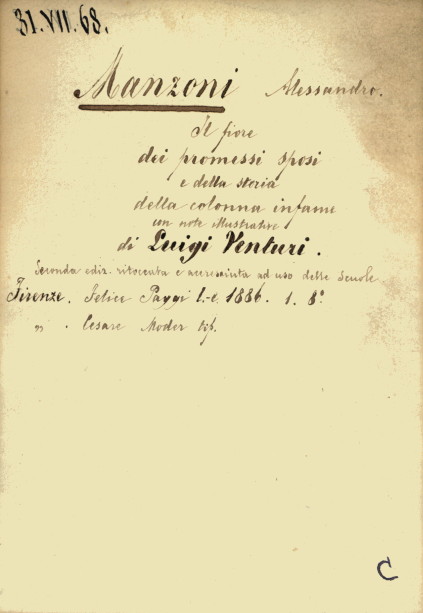 31.VII.68.
Manzoni Alessandro.
Il fiore
dei promessi sposi
e della storia
della colonna infame
con note illustrative
di Luigi Venturi.
Seconda ediz. ritoccata e accresciuta ad uso delle Scuole
Firenze. Felice Paggi l.-e. 1886. 1. 8°.
„ . Cesare Moder tip.
C